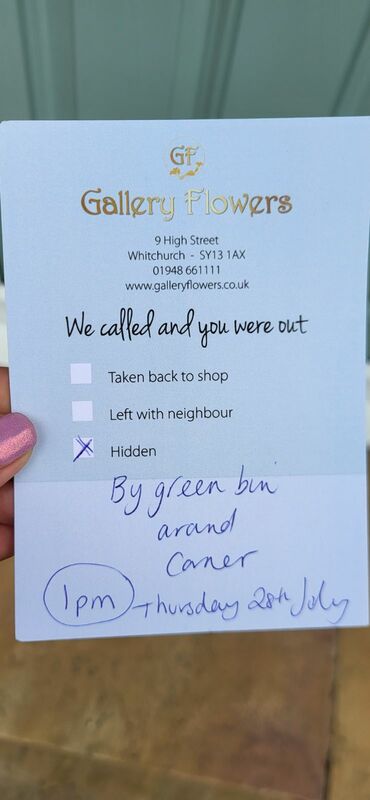 GF
Gallery Flowers
9 High Street
Whitchurch - SY13 1AX
01948 661111
www.galleryflowers.co.uk
We called and you were out
Taken back to shop
Left with neighbour
X Hidden
By green bin
arand
Corner
1pm Thursday 28th July